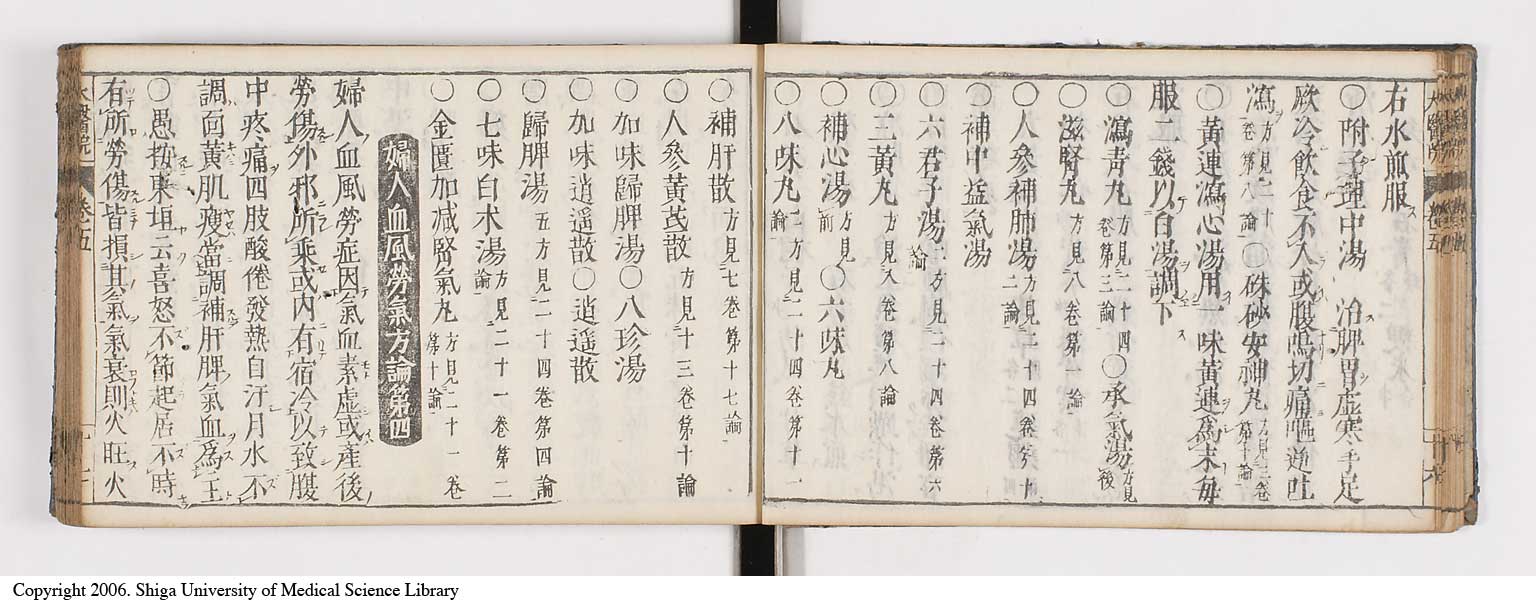 右水煎服
〇附子理中湯　治脾胃虛寒手足
厥冷飲食不入或腹鳴切痛嘔逆吐
瀉方見二十卷第八論〇硃砂安神丸方見三卷第十論
〇黃連瀉心湯用一味黃連為末每
服一錢以白湯調下
〇瀉青丸方見二十四卷第三論〇承氣湯方見後
〇滋腎丸方見八卷第一論
〇人參補肺湯方見二十四卷第十二論
〇補中益氣湯
〇六君子湯二方見二十四卷第六論
〇三黃丸方見八卷第八論
〇補心湯方見前〇六味丸
〇八味丸二方見二十四卷第十一論
〇補肝散方見七卷第十七論
〇人參黃芪散方見十三卷第十論
〇加味歸脾湯〇八珍湯
〇加味逍遥散〇逍遥散
〇歸脾湯五方見二十四卷第四論
〇七味白朮湯方見二十一卷第二論
〇金匱加減腎氣丸方見二十一卷第十論
婦人血風勞氣方論第四
婦人血風勞症因氣血素虛或產後
勞傷外邪所乘或内有宿冷以致腹
中疼痛四肢酸倦發熱自汗月水不
調面黃肌瘦當調補肝脾氣血為主
〇愚按東垣云喜怒不節起居不時
有所勞傷皆損其氣氣衰則火旺火
卷五
Copyright 2006. Shiga University of Medical Science Library